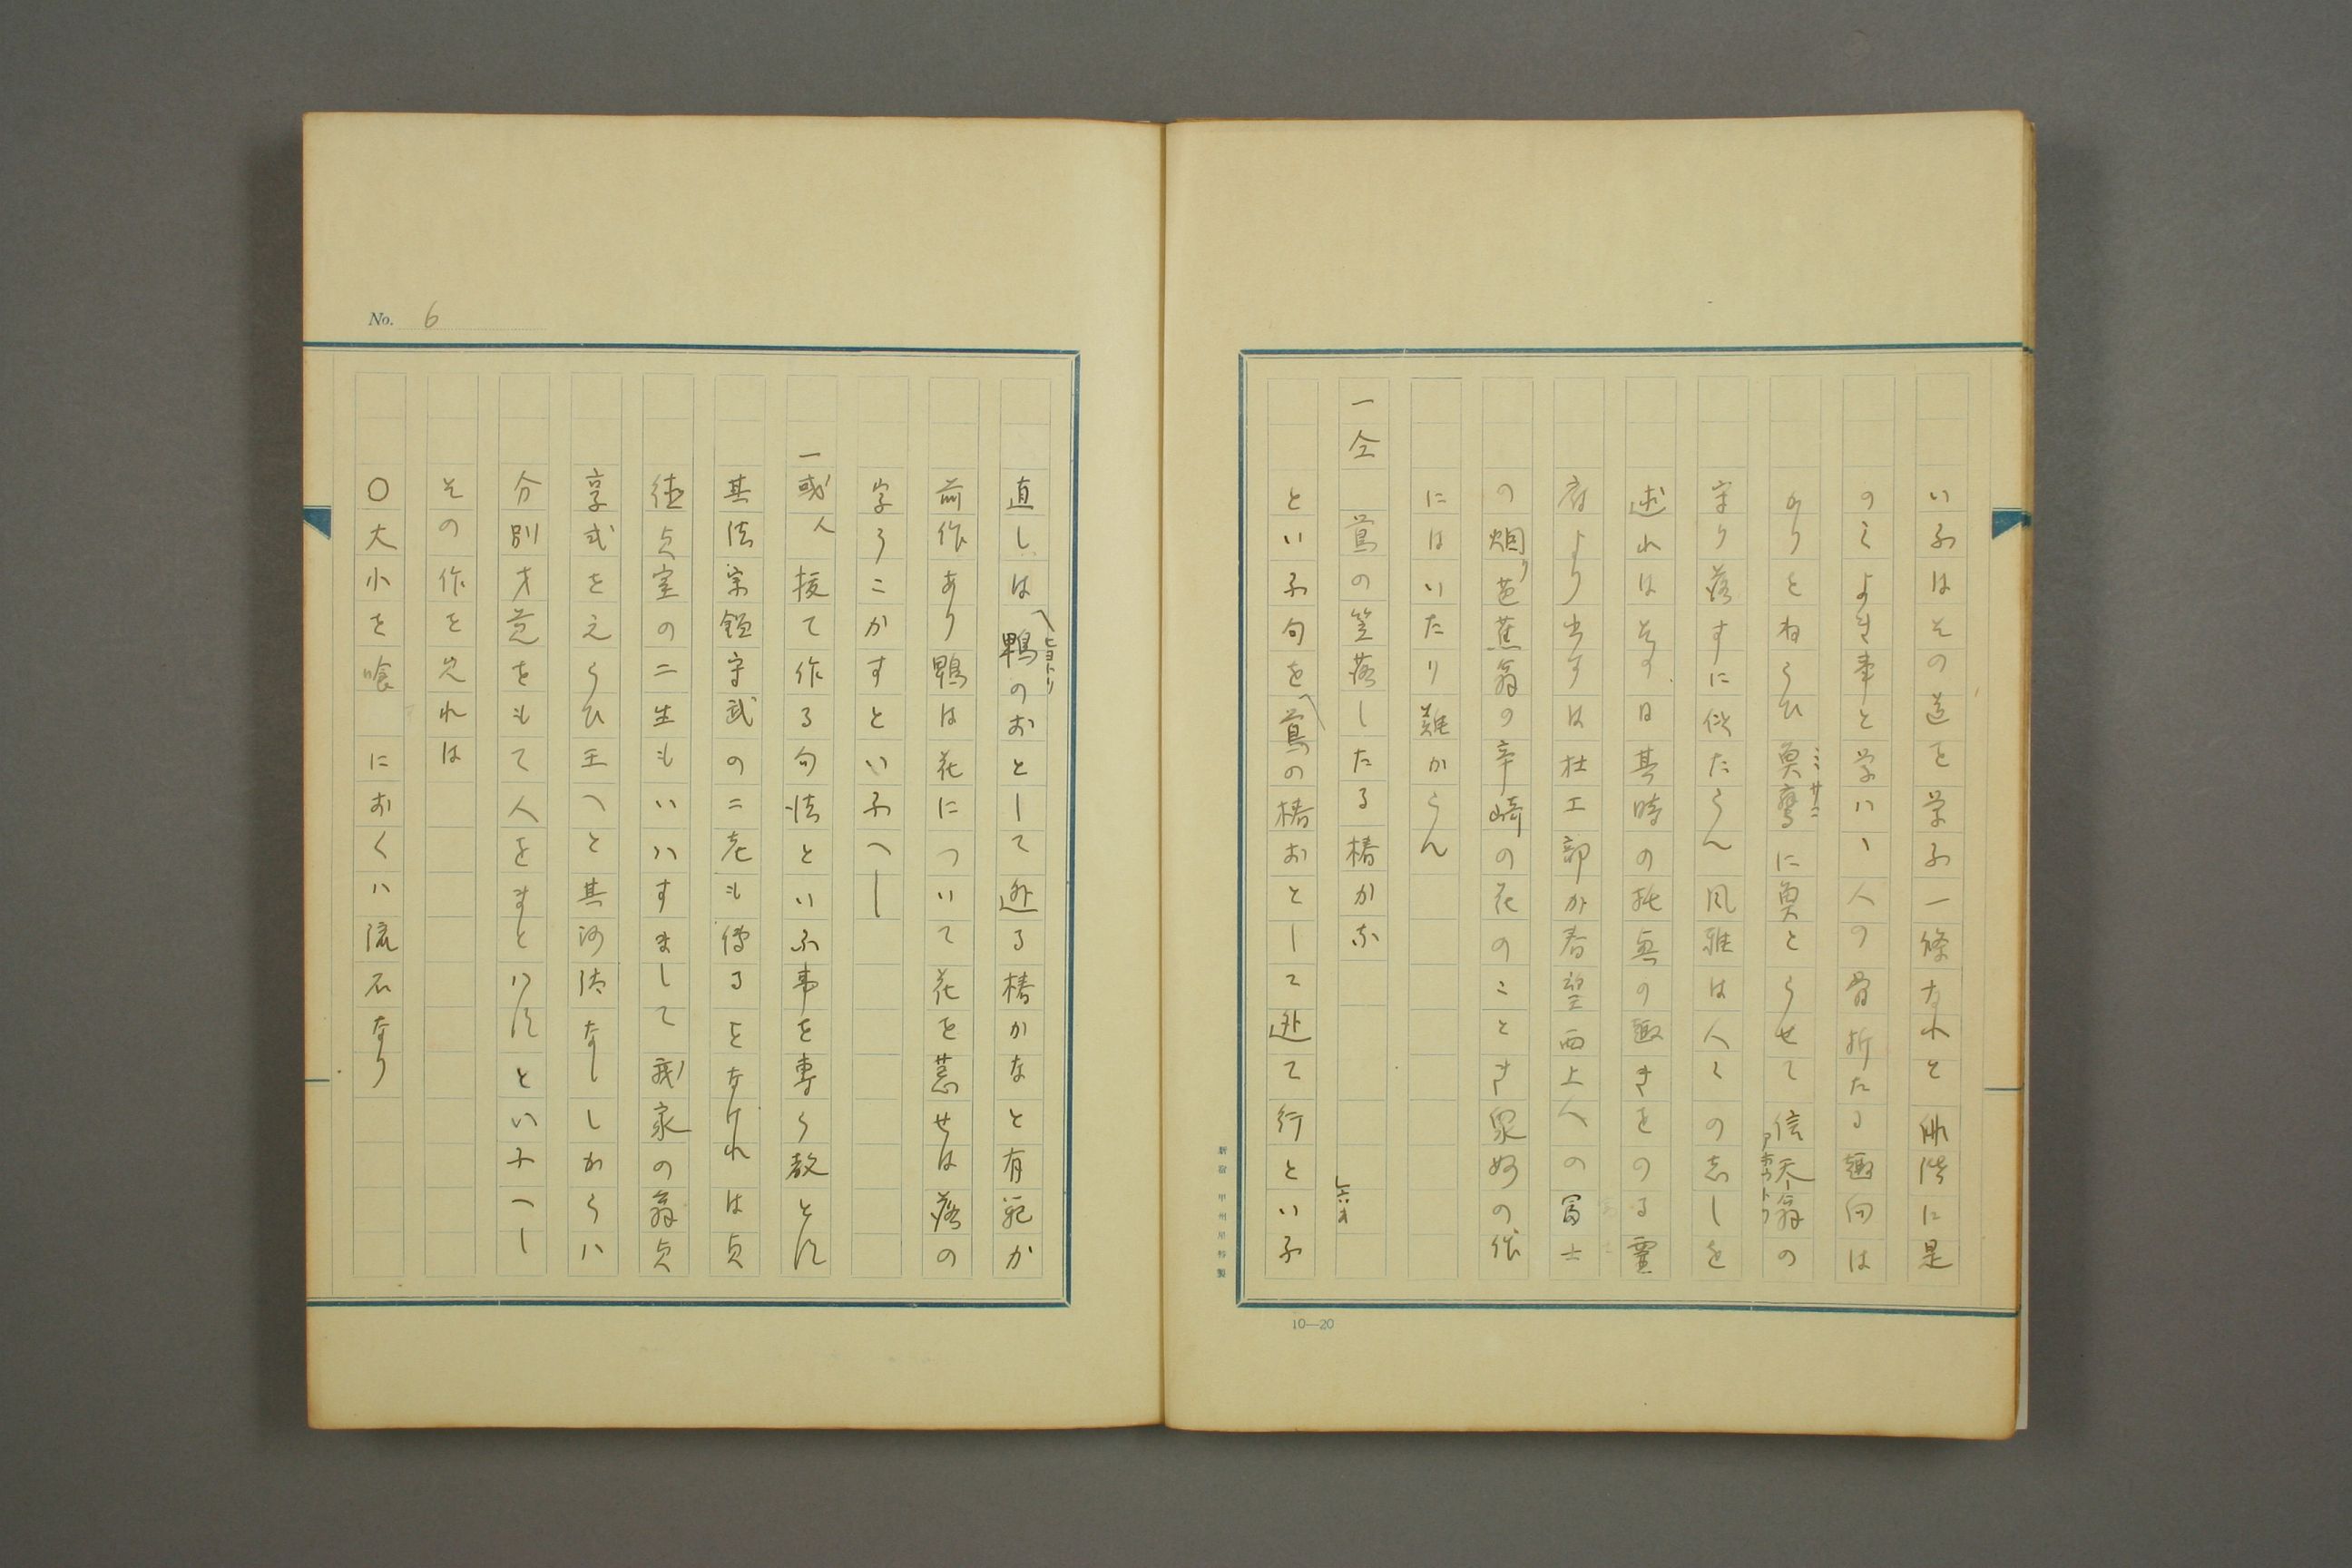 いふはその道を学ふ一條なれと俳諧に是
のミよき事と学ハヽ人の骨折たる趣向は
かりをねらひ魚鷹に魚とらせて信天翁の
ミサコ
アホウトリ
守り落すに似たらん風雅は人々の志しを
述れは其時の
府より出すは杜工部か春望西上人の冨士
の烟り芭蕉翁の辛崎の花のことき泉妙の作
にはいたり難からん
一仝 鶯の笠落したる椿かな
といふ句を鶯の椿おとして逃て行といふ
新宿 甲州屋特製
10—20
No. 6
直しは鵯のおとして逃る椿かなと有範か
ヒヨトリ
前作あり鵯は花について花を慕せは落の
字うこかすといふへし
一或人 接て作る句法といふ事を専ら教とハ
其法宗鑑守武の二老も傳るとなけれは貞
徳貞室の二生もいハすまして我家の翁貞
享式をえらひ玉へと其沙法なししからハ
分別才覚をもて人をまとハすといふへし
その作を見れは
〇大小を喰 におくハ流石なり